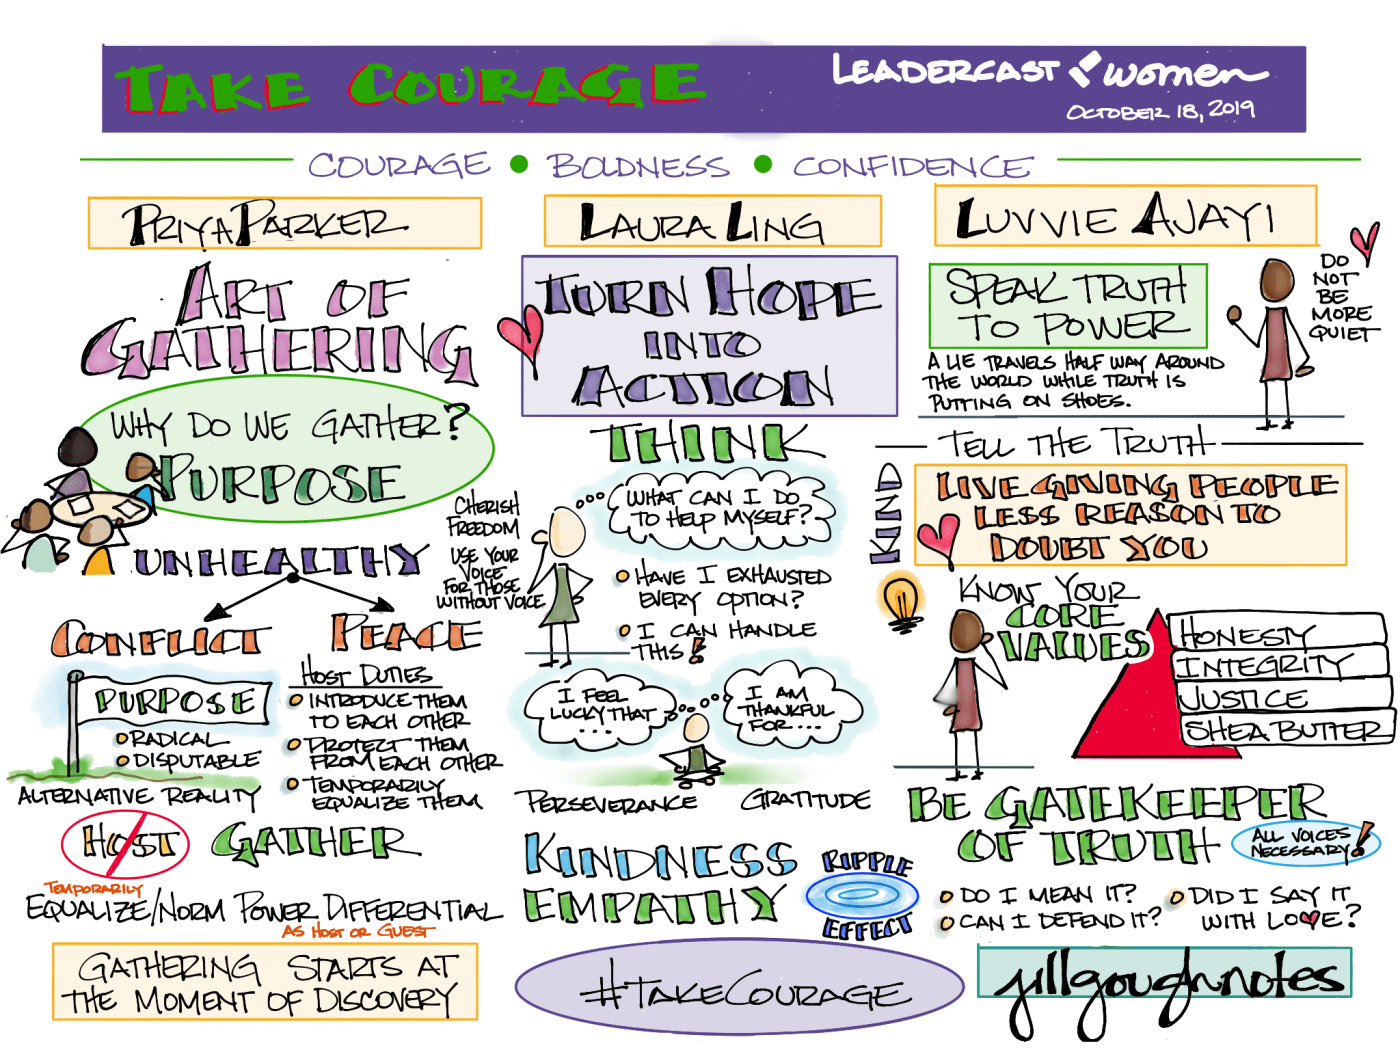 TAKE COURAGE
LEADERCAST women
OCTOBER 18, 2019
COURAGE • BOLDNESS • CONFIDENCE
PRIYA PARKER
ART OF
GATHERING
WHY DO WE GATHER?
PURPOSE
UNHEALTHY
CONFLICT
PEACE
PURPOSE
RADICAL
DISPUTABLE
ALTERNATIVE REALITY
HOST DUTIES
INTRODUCE THEM
TO EACH OTHER
PROTECT THEM
FROM EACH OTHER
TEMPORARILY
EQUALIZE THEM
HOST
GATHER
TEMPORARILY
EQUALIZE/NORM POWER DIFFERENTIAL
AS HOST OR GUEST
GATHERING STARTS AT
THE MOMENT OF DISCOVERY
LAURA LING
TURN HOPE
INTO
ACTION
THINK
CHERISH
FREEDOM
USE YOUR
VOICE
FOR THOSE
WITHOUT VOICE
WHAT CAN I DO
TO HELP MYSELF?
HAVE I EXHAUSTED
EVERY OPTION?
I CAN HANDLE
THIS!
I FEEL
LUCKY THAT
....
I AM
THANKFUL
FOR....
PERSEVERANCE
GRATITUDE
KINDNESS
EMPATHY
RIPPLE
EFFECT
#TAKECOURAGE
LUVVIE AJAYI
SPEAK TRUTH
TO POWER
DO
NOT
BE
MORE
QUIET
A LIE TRAVELS HALF WAY AROUND
THE WORLD WHILE TRUTH IS
PUTTING ON SHOES.
TELL THE TRUTH
KIND
LIVE GIVING PEOPLE
LESS REASON TO
DOUBT YOU
KNOW YOUR
CORE
VALUES
HONESTY
INTEGRITY
JUSTICE
SHEA BUTTER
BE GATEKEEPER
OF TRUTH
ALL VOICES
NECESSARY!
DO I MEAN IT?
CAN I DEFEND IT?
DID I SAY IT
WITH LOVE?
jillgoughnotes